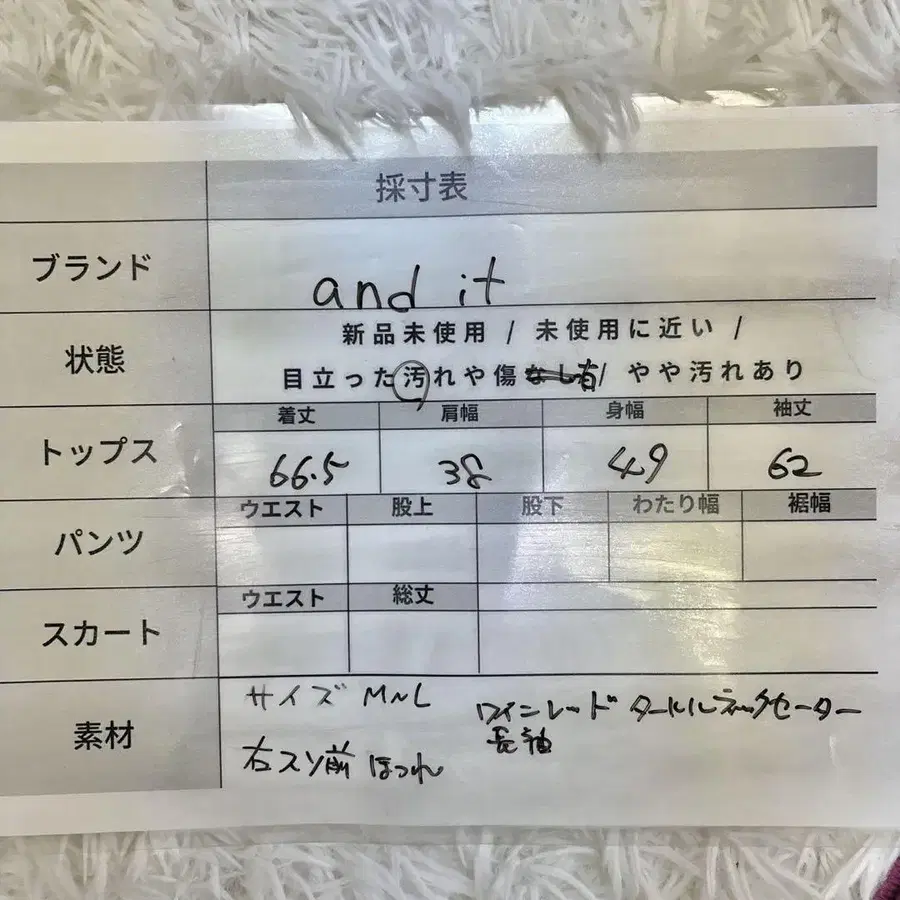 採寸表
ブランド and it
状態 新品未使用 / 未使用に近い /
目立った汚れや傷なし有/ やや汚れあり
トップス 着丈 肩幅 身幅 袖丈
66.5 38 49 62
パンツ ウエスト 股上 股下 わたり幅 裾幅
スカート ウエスト 総丈
素材 サイズ M~L ワインレッド タートルネックセーター
長袖
右スソ前 ほつれ